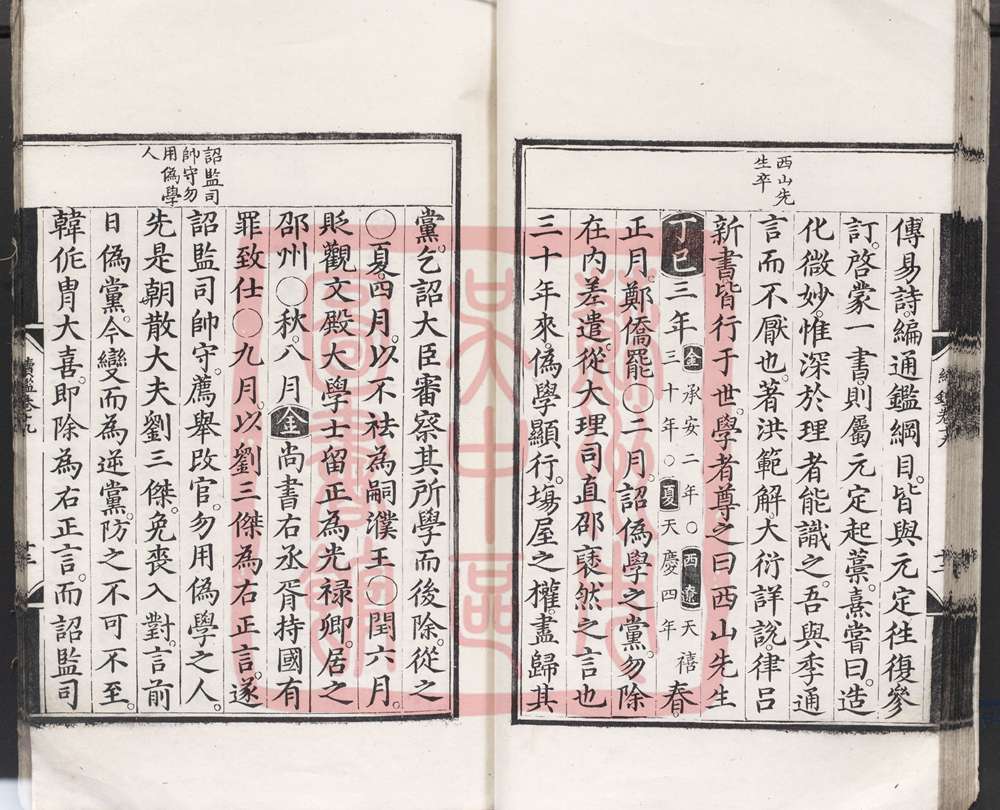 西山先
生卒
傳易詩。編通鑑綱目。皆與元定往復參
訂。啓蒙一書。則屬元定起藁。熹嘗曰。造
化微妙。惟深於理者能識之。吾與季通
言而不厭也。著洪範解大衍詳說。律呂
新書皆行于世。學者尊之曰西山先生
丁巳三年金承安二年○西遼天禧三十年○夏天慶四年春。
正月。鄭僑罷○二月。詔僞學之黨。勿除
在内差遣。從大理司直邵褎然之言也
三十年來。僞學顯行。場屋之權。盡歸其
詔監司
帥守勿
用僞學
人
黨。乞詔大臣審察其所學而後除。從之
○夏。四月。以不祛為嗣濮王○閏六月。
貶觀文殿大學士留正為光祿卿。居之
邵州○秋。八月金尚書右丞胥持國有
罪致仕○九月。以劉三傑為右正言。遂
詔監司帥守。薦舉改官。勿用僞學之人。
先是朝散大夫劉三傑。免喪入對。言前
日僞黨。今變而為逆黨。防之不可不至。
韓侂胄大喜。即除為右正言。而詔監司